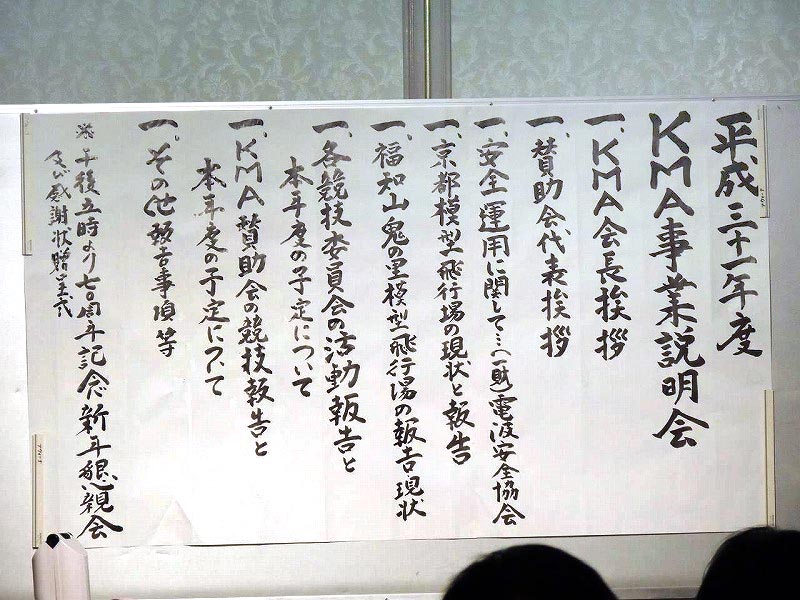 平成三十一年度
KMA事業説明会
一、KMA会長挨拶
一、賛助会代表挨拶
一、安全運用に関して…(一財)電波安全協会
一、京都模型飛行場の現状と報告
一、福知山鬼の里模型飛行場の報告現状
一、各競技委員会の活動報告と
本年度の予定について
一、KMA賛助会の競技報告と
本年度の予定について
一、その他報告事項等
※午後五時より七〇周年記念新年懇親会
及び感謝状贈呈式